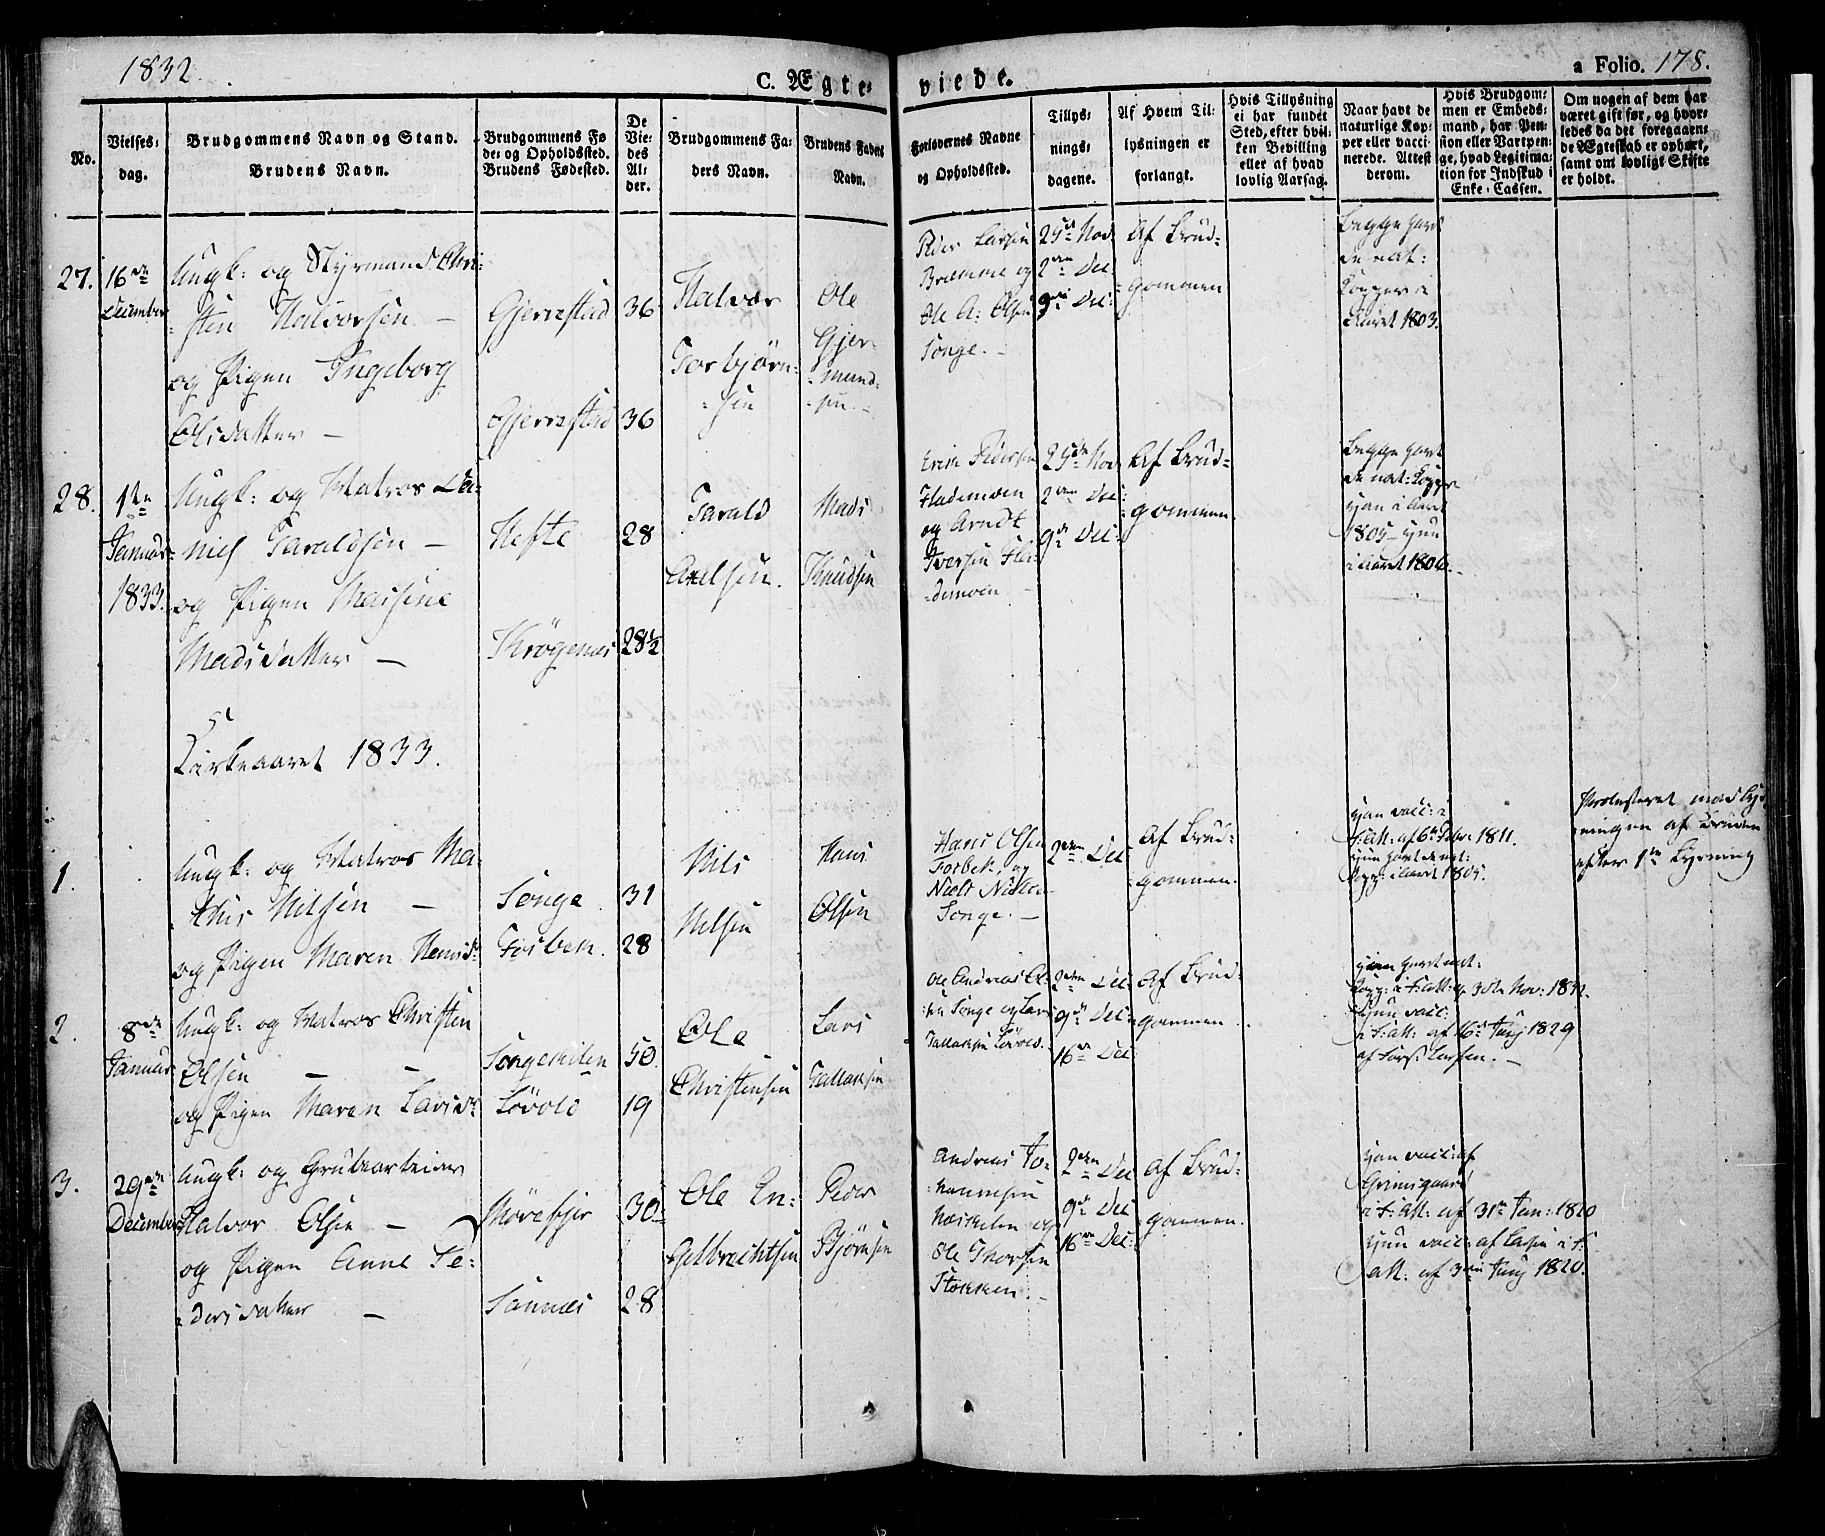 1832.
C. Ægte-
viede.
a Folio. 178.
No.
Vielses-
dag.
Brudgommens Navn og Stand.
Brudens Navn.
Brudgommens Fø
de- og Opholdssted.
Brudens Fødested.
De
Vie-
des
Al-
der.
Brudgommens Fa-
ders Navn.
Brudens Faders
Navn.
Forlovernes Navne
og Opholdssted.
Tillys-
nings-
dagene.
Af Hvem Til-
lysningen er
forlangt.
Hvis Tillysning
ei har fundet
Sted, efter hvil-
ken Bevilling
eller af hvad
lovlig Aarsag.
Naar havt de
naturlige Kop-
per eller vacci-
nerede. Attest
derom.
Hvis Brudgom-
men er Embeds-
mand, har Pen-
sion eller Vartpen-
ge, hvad Legitima-
tion for Indskud i
Enke-Cassen.
Om nogen af dem har
været gift før, og hvor-
ledes da det foregaaen-
de Ægteskab er ophørt,
samt om lovligt Skifte
er holdt.
27.
16de
December
Ungk: og Styrmand Chri-
sten Halvorsen —
og Pigen Ingeborg
Olsdatter —
Gjerrestad
Gjerrestad
36
36
Halvor
Torbjörn-
sen
Ole
Gjer-
mund-
sen.
Peder Larsen
Bræmme og
Ole A: Olsen
Songe. —
25de Nov
2den Dec:
9de Dec:
Af Brud-
gommen
Begge havt
de nat:
Kopper i
Aaret 1803.
28.
1ste
Januar
1833.
Ungk: og Matros Da-
niel Taraldsen —
og Pigen Massine
Madsdatter —
Hefte
Krögenes
28
28½
Tarald
Axelsen.
Mads
Knudsen
Erik Pedersen
Flademoen
og Arndt
Iversen Fla-
demoen
25de Nov
2den Dec:
9de Dec:
Af Brud-
gommen.
Begge havt
de nat: Kopper
han i Aaret
1805 hun
i Aaret 1806.
Kirkeaaret 1833.
1.
Ungk: og Matros Ma-
this Nilsen —
og Pigen Maren Hansd:
Songe
Fosbek.
31
28
Nils
Nilsen
Hans
Olsen
Hans Olsen
Fosbek, og
Niels Nilsen
Songe. —
2den Dec:
Af Brud-
gommen.
han vacc: i
F: att: af 6te Febr: 1811.
hun havt de nat:
Kopp: i Aaret 1805.
Protesteret mod Lys-
ningen af Bruden
efter 1ste Lysning
2.
8de
Januar
Ungk: og Matros Christen
Olsen — —
og Pigen Maren Larsd:
Songekilen
Lövold
50.
19
Ole
Christensen
Lars
Tallaksen
Ole Andreas Ol-
sen Songe og Lars
Tallaksen Lövold.
2den Dec:
9de Dec:
16de Dec:
Af Brud-
gommen.
han havt nat:
Kopp: i F: att: af 30te Nov: 1832.
hun vacc:
i F: att: af 16de Juny 1829
3.
29de
December
Ungk: og Grubearbeider
Halvor Olsen —
og Pigen Anne Pe-
dersdatter —
Mörefjer
Sannes
30
28
Ole En-
gelbrechtsen
Peder
Björnsen
Andreas Jo-
hannesen
Næskilen og
Ole Thorsen
Stokken. —
2den Dec
9de Dec
16de Dec:
Af Brud-
gommen.
han vacc: af
Grimsgaard
i F: att: af 31te Jan: 1820
hun vacc: af Larsen i F:
att: af 3die Juny 1820.